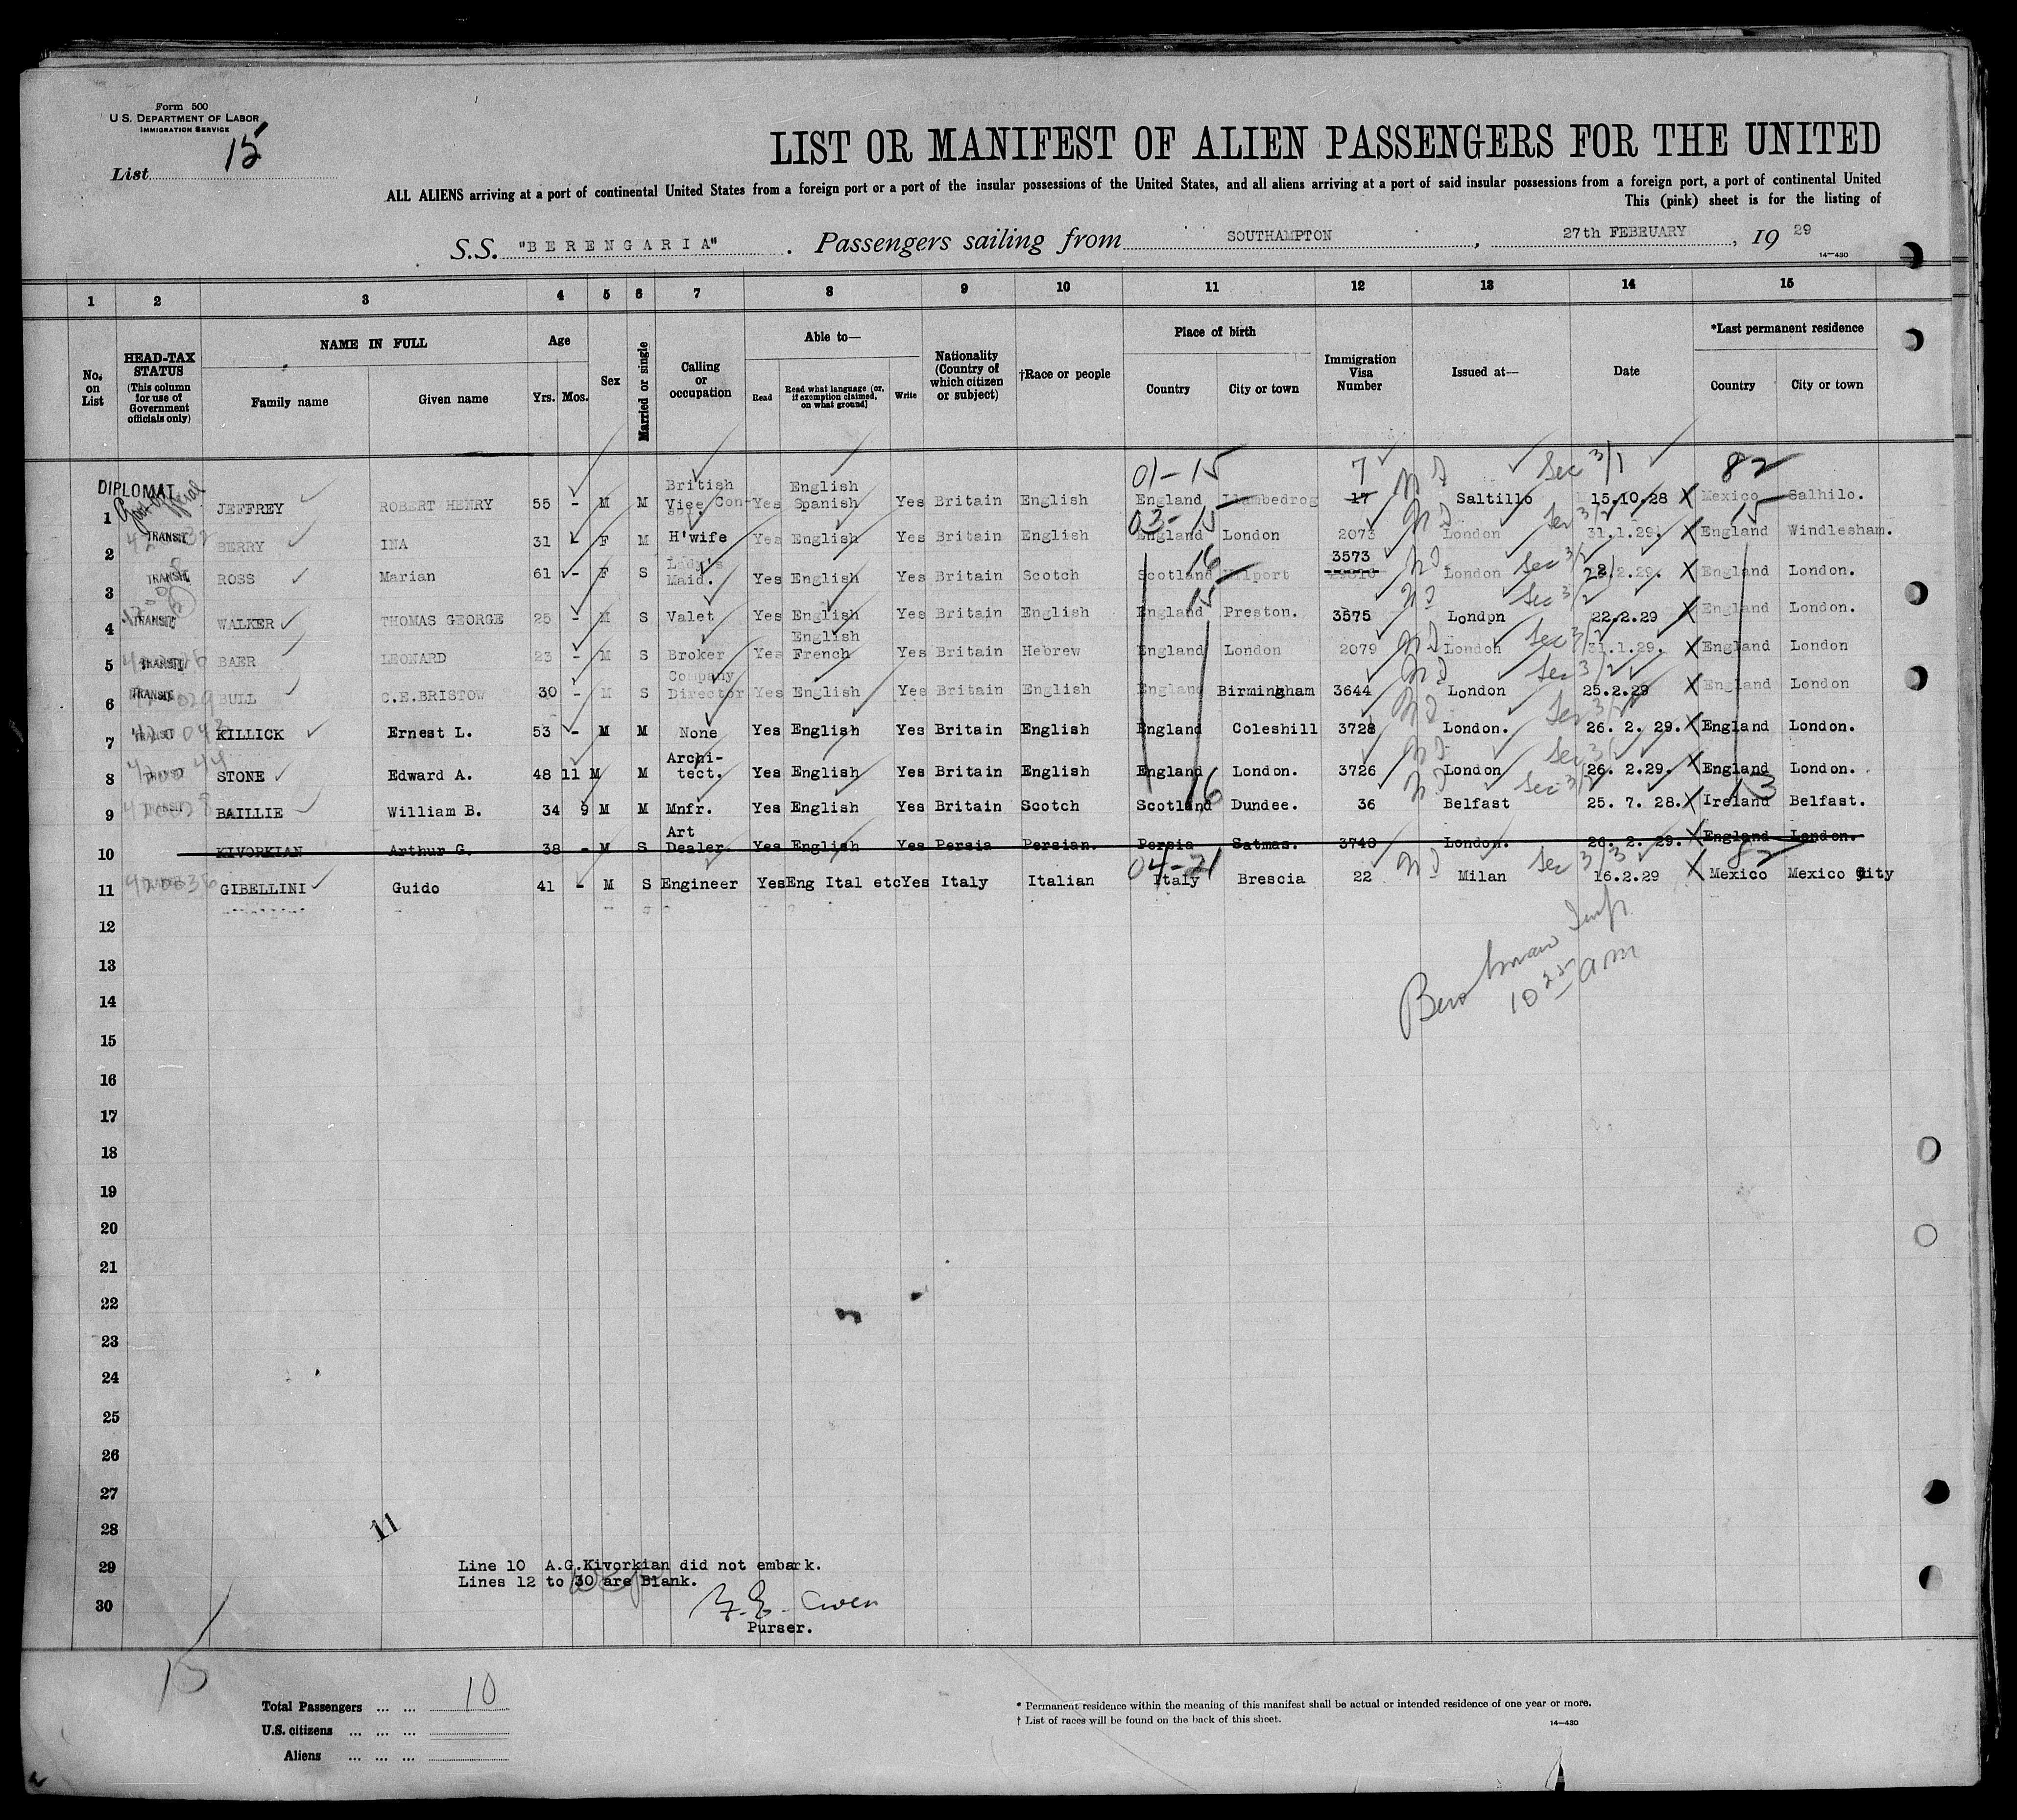 Form 500
U. S. DEPARTMENT OF LABOR
IMMIGRATION SERVICE
List 15
LIST OR MANIFEST OF ALIEN PASSENGERS FOR THE UNITED
ALL ALIENS arriving at a port of continental United States from a foreign port or a port of the insular possessions of the United States, and all aliens arriving at a port of said insular possessions from a foreign port, a port of continental United
This (pink) sheet is for the listing of
S.S. "BERENGARIA" . Passengers sailing from SOUTHAMPTON , 27th FEBRUARY , 19 29
14—430
1 2 3 4 5 6 7 8 9 10 11 12 13 14 15
No. on List
HEAD-TAX STATUS (This column for use of Government officials only)
NAME IN FULL
Family name
Given name
Age
Yrs. Mos.
Sex
Married or single
Calling or occupation
Able to—
Read
Read what language (or, if exemption claimed, on what ground)
Write
Nationality (Country of which citizen or subject)
†Race or people
Place of birth
Country
City or town
Immigration Visa Number
Issued at—
Date
*Last permanent residence
Country
City or town
01-15 7 N I Sec 3/1 82
DIPLOMAT
1 JEFFREY ROBERT HENRY 55 - M M British Vice Con- Yes English Spanish Yes Britain English England Llambedrog 17 Saltillo 15.10.28 X Mexico Salhilo.
03-15 N I Sec 3/2 15
2 TRANSIT BERRY INA 31 - F M H'wife Yes English Yes Britain English England London 2073 London 31.1.29. X England Windlesham.
3 TRANSIT ROSS Marian 61 - F S Lady's Maid. Yes English Yes Britain Scotch Scotland 16 3573 N I London Sec 3/2 22.2.29. X England London.
4 TRANSIT WALKER THOMAS GEORGE 25 - M S Valet Yes English Yes Britain English England 15 Preston. 3575 N I London Sec 3/2 22.2.29 X England London.
5 TRANSIT BAER LEONARD 23 - M S Broker Yes English French Yes Britain Hebrew England London 2079 N I London Sec 3/2 31.1.29. X England London
6 TRANSIT BULL C.E.BRISTOW 30 - M S Company Director Yes English Yes Britain English England Birmingham 3644 N I London Sec 3/2 25.2.29 X England London
7 TRANSIT KILLICK Ernest L. 53 - M M None Yes English Yes Britain English England Coleshill 3728 N I London. Sec 3/2 26. 2. 29. X England London.
8 TRANSIT STONE Edward A. 48 11 M M Archi- tect. Yes English Yes Britain English England London. 3726 N I London Sec 3/2 26. 2.29. X England London.
9 TRANSIT BAILLIE William B. 34 9 M M Mnfr. Yes English Yes Britain Scotch Scotland 16 Dundee. 36 N I Belfast Sec 3/2 25. 7. 28. X Ireland 13 Belfast.
10 KIVORKIAN Arthur G. 38 - M S Art Dealer. Yes English Yes Persia Persian. Persia Satmas. 3740 London. 26. 2. 29. X England London.
04-21 82
11 GIBELLINI Guido 41 - M S Engineer Yes Eng Ital etc Yes Italy Italian Italy Brescia 22 N I Milan Sec 3/3 16.2.29 X Mexico Mexico City
12
13
Insp
10 25 am
14
15
16
17
18
19
20
21
22
23
24
25
26
27
28
11
29
30
Line 10 A.G.Kivorkian did not embark.
Lines 12 to 30 are Blank.
Purser.
15
Total Passengers ... ... 10
U.S. citizens ... ... ...
Aliens ... ... ...
* Permanent residence within the meaning of this manifest shall be actual or intended residence of one year or more.
† List of races will be found on the back of this sheet.
14—430